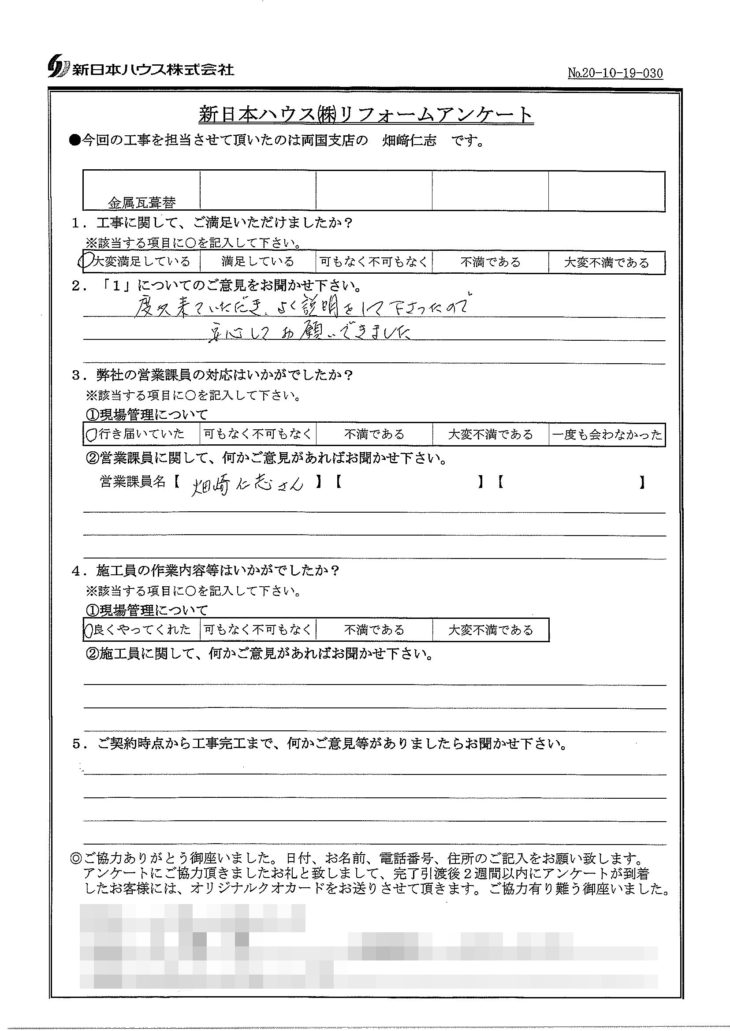 新日本ハウス株式会社
№20-10-19-030
新日本ハウス㈱リフォームアンケート
●今回の工事を担当させて頂いたのは両国支店の 畑﨑仁志 です。
金属瓦葺替
1．工事に関して、ご満足いただけましたか？
※該当する項目に○を記入して下さい。
大変満足している 満足している 可もなく不可もなく 不満である 大変不満である
2．「1」についてのご意見をお聞かせ下さい。
度々来ていただき、よく説明をして下さったので
安心してお願いできました
3．弊社の営業課員の対応はいかがでしたか？
※該当する項目に○を記入して下さい。
①現場管理について
行き届いていた 可もなく不可もなく 不満である 大変不満である 一度も会わなかった
②営業課員に関して、何かご意見があればお聞かせ下さい。
営業課員名【 畑﨑仁志さん 】【 】【 】
4．施工員の作業内容等はいかがでしたか？
※該当する項目に○を記入して下さい。
①現場管理について
良くやってくれた 可もなく不可もなく 不満である 大変不満である
②施工員に関して、何かご意見があればお聞かせ下さい。
5．ご契約時点から工事完工まで、何かご意見等がありましたらお聞かせ下さい。
◎ご協力ありがとう御座いました。日付、お名前、電話番号、住所のご記入をお願い致します。
アンケートにご協力頂きましたお礼と致しまして、完了引渡後２週間以内にアンケートが到着
したお客様には、オリジナルクオカードをお送りさせて頂きます。ご協力有り難う御座いました。